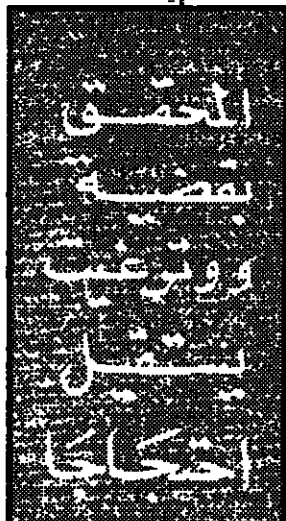 المحقق
بقضية
ووترغيت
يستقيل
احتجاجا